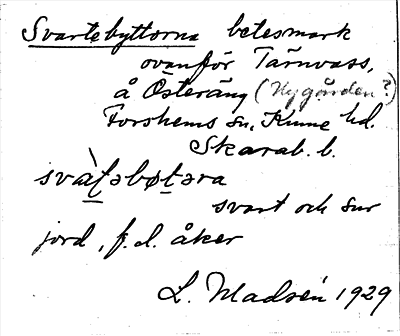 Svartebyttorna betesmark
ovanför Tärnvass,
å Österäng (Nygården?)
Forshems sn, Kinne hd.
Skarab. l.
svàt̲əbøt̲əra
svart och sur
jord, f.d. åker
L. Madsén 1929